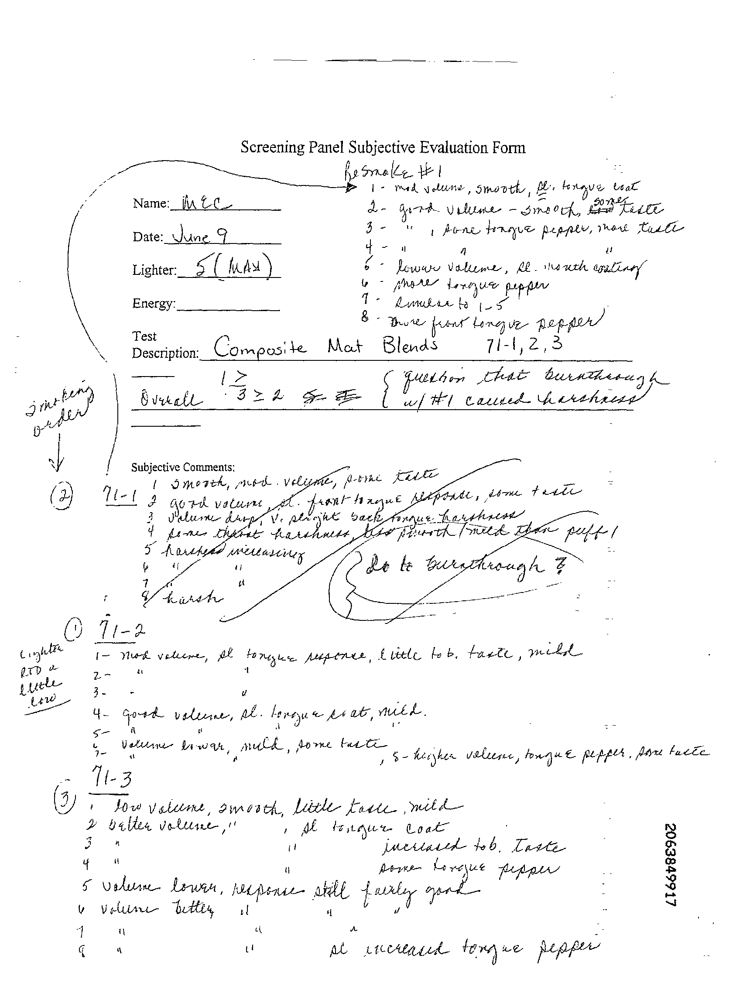 Screening Panel Subjective Evaluation Form
Resmoke #1
1 - mod volume, smooth, sl. tongue coat
Name: MEC
2 - good volume - smooth, some taste
3 - " , some tongue pepper, more taste
Date: June 9
4 - " " "
Lighter: 5 (MAX)
5 - lower volume, sl. mouth coating
6 - more tongue pepper
Energy:
7 - similar to 1-5
8 - more front tongue pepper
Test
Description: Composite Mat Blends 71-1, 2, 3
Overall 1 ≥ 3 ≥ 2 { question that burnthrough
w/ #1 caused harshness
smoking
order
Subjective Comments:
(2) 71-1
1 smooth, mod. volume, some taste
2 good volume, sl. front tongue response, some taste
3 volume drop, v. slight back tongue harshness
4 some throat harshness, less smooth / mild than puff 1
5 harshness increasing
6 " "
7 " "
8 harsh
do to burnthrough ?
(1) 71-2
Lighter
RTD a
little
low
1 - mod volume, sl tongue response, little tob. taste, mild
2 - " "
3 - " "
4 - good volume, sl. tongue coat, mild.
5 - " " "
6 - volume lower, mild, some taste
7 - " " , 8 - higher volume, tongue pepper, some taste
(3) 71-3
1 low volume, smooth, little taste, mild
2 better volume, " , sl tongue coat
3 " " increased tob. taste
4 " some tongue pepper
5 volume lower, response still fairly good
6 volume better " " "
7 " " "
8 " " sl increased tongue pepper
2063849917